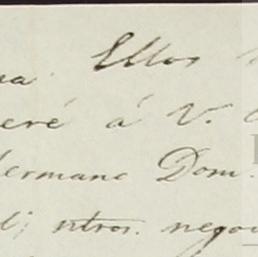 na. Ellos
eré á V.
hermano Dom.
ntros. nego